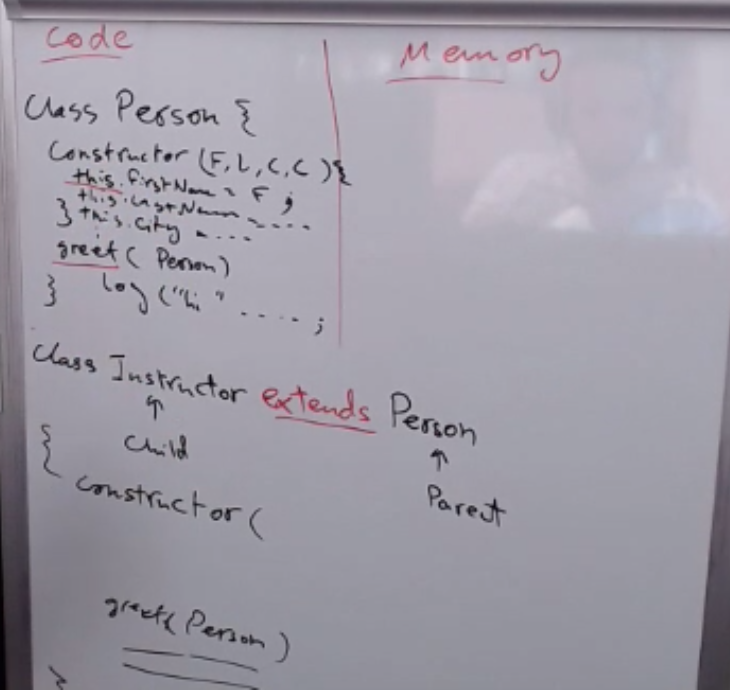 Code
Memory
Class Person {
Constructor (F, L, C, C ) {
this.firstName = F ;
this.LastName = ....
} this.City = ....
greet ( Person)
log ("hi" .....;
}
Class Instructor extends Person
↑ ↑
Child
Parent
{
Constructor (
greet( Person )
}